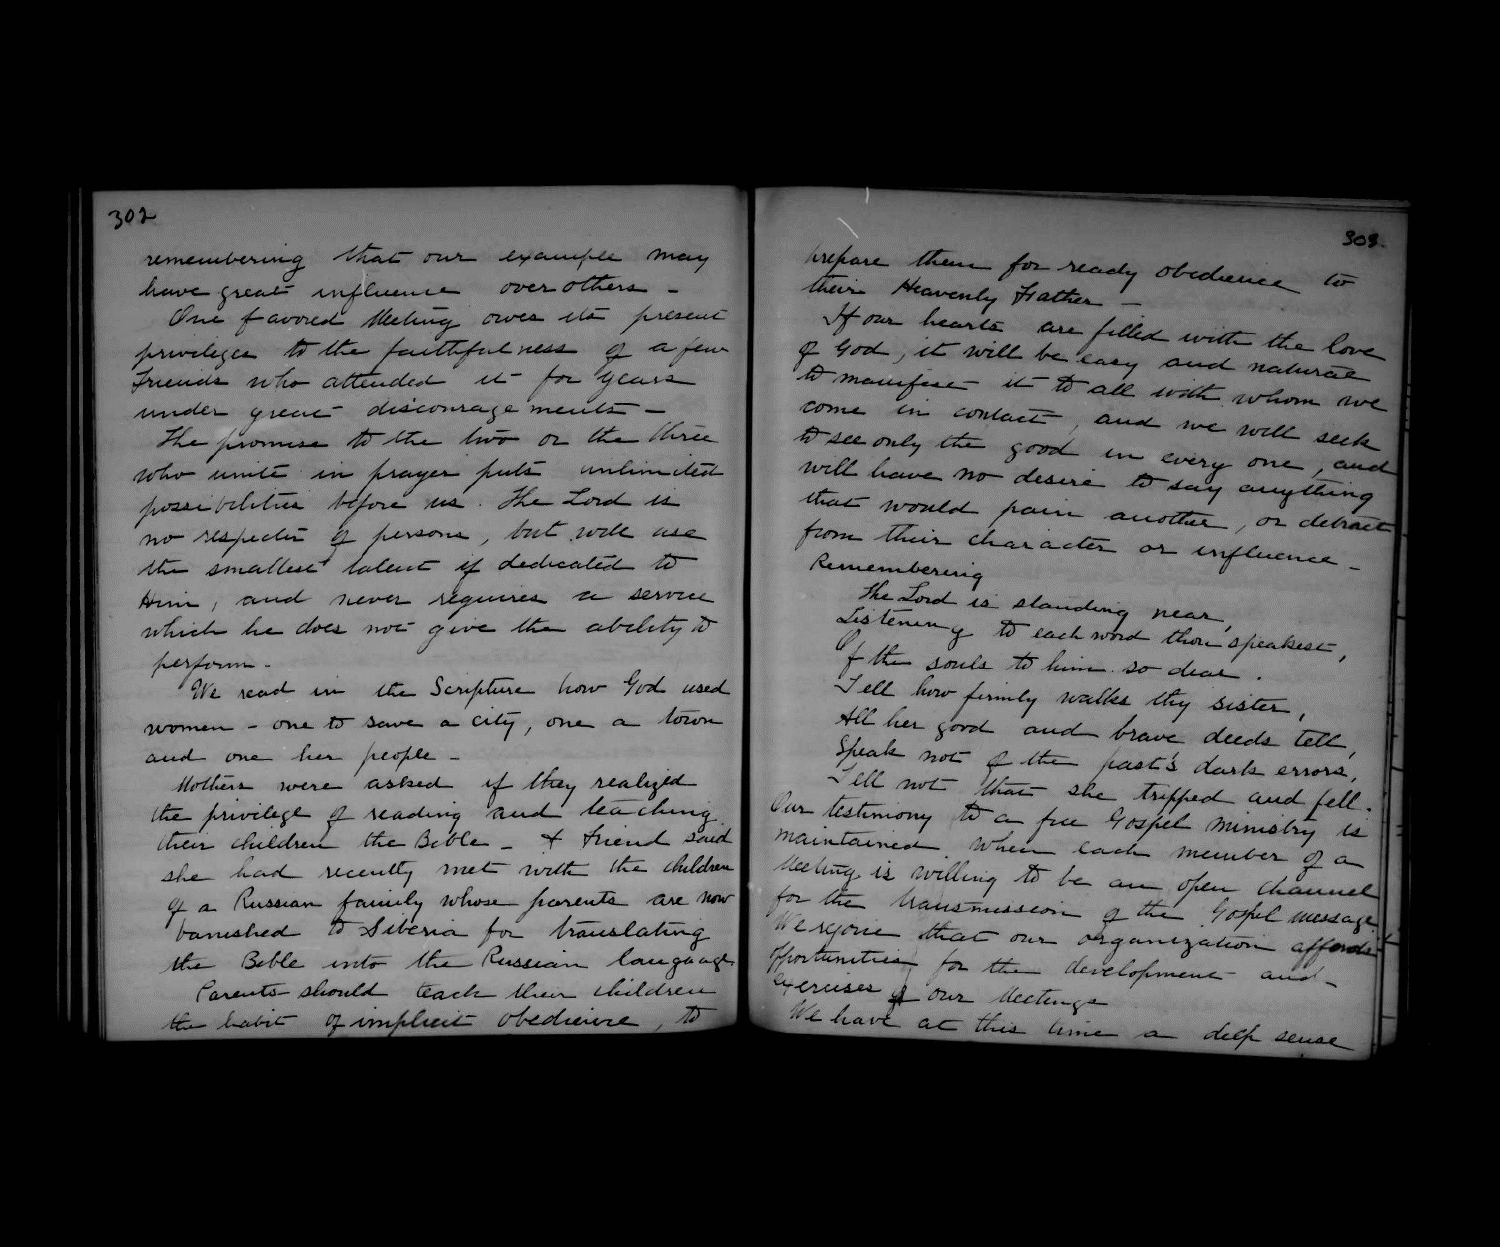 302
remembering that our example may
have great influence over others -
One favored Meeting owes its present
privileges to the faithfulness of a few
Friends who attended it for years
under great discouragements -
The promise to the two or the three
who unite in prayer puts unlimited
possibilities before us. The Lord is
no respecter of persons, but will use
the smallest talent if dedicated to
Him, and never requires a service
which he does not give the ability to
perform -
We read in the Scripture how God used
women - one to save a city, one a town
and one her people -
Mothers were asked if they realized
the privilege of reading and teaching
their children the Bible - A Friend said
she had recently met with the children
of a Russian family whose parents are now
banished to Siberia for translating
the Bible into the Russian language
Parents should teach their children
the habit of implicit obedience, to
303
prepare them for ready obedience to
their Heavenly Father -
If our hearts are filled with the love
of God, it will be easy and natural
to manifest it to all with whom we
come in contact, and we will seek
to see only the good in every one, and
will have no desire to say anything
that would pain another, or detract
from their character or influence -
Remembering
The Lord is standing near,
Listening to each word thou speakest,
Of the souls to him so dear.
Tell how firmly walks thy sister,
All her good and brave deeds tell,
Speak not of the past's dark errors,
Tell not that she tripped and fell.
Our testimony to a free Gospel ministry is
maintained when each member of a
Meeting is willing to be an open channel
for the transmission of the Gospel message.
We rejoice that our organization affords
opportunities for the development and -
exercises of our Meetings
We have at this time a deep sense